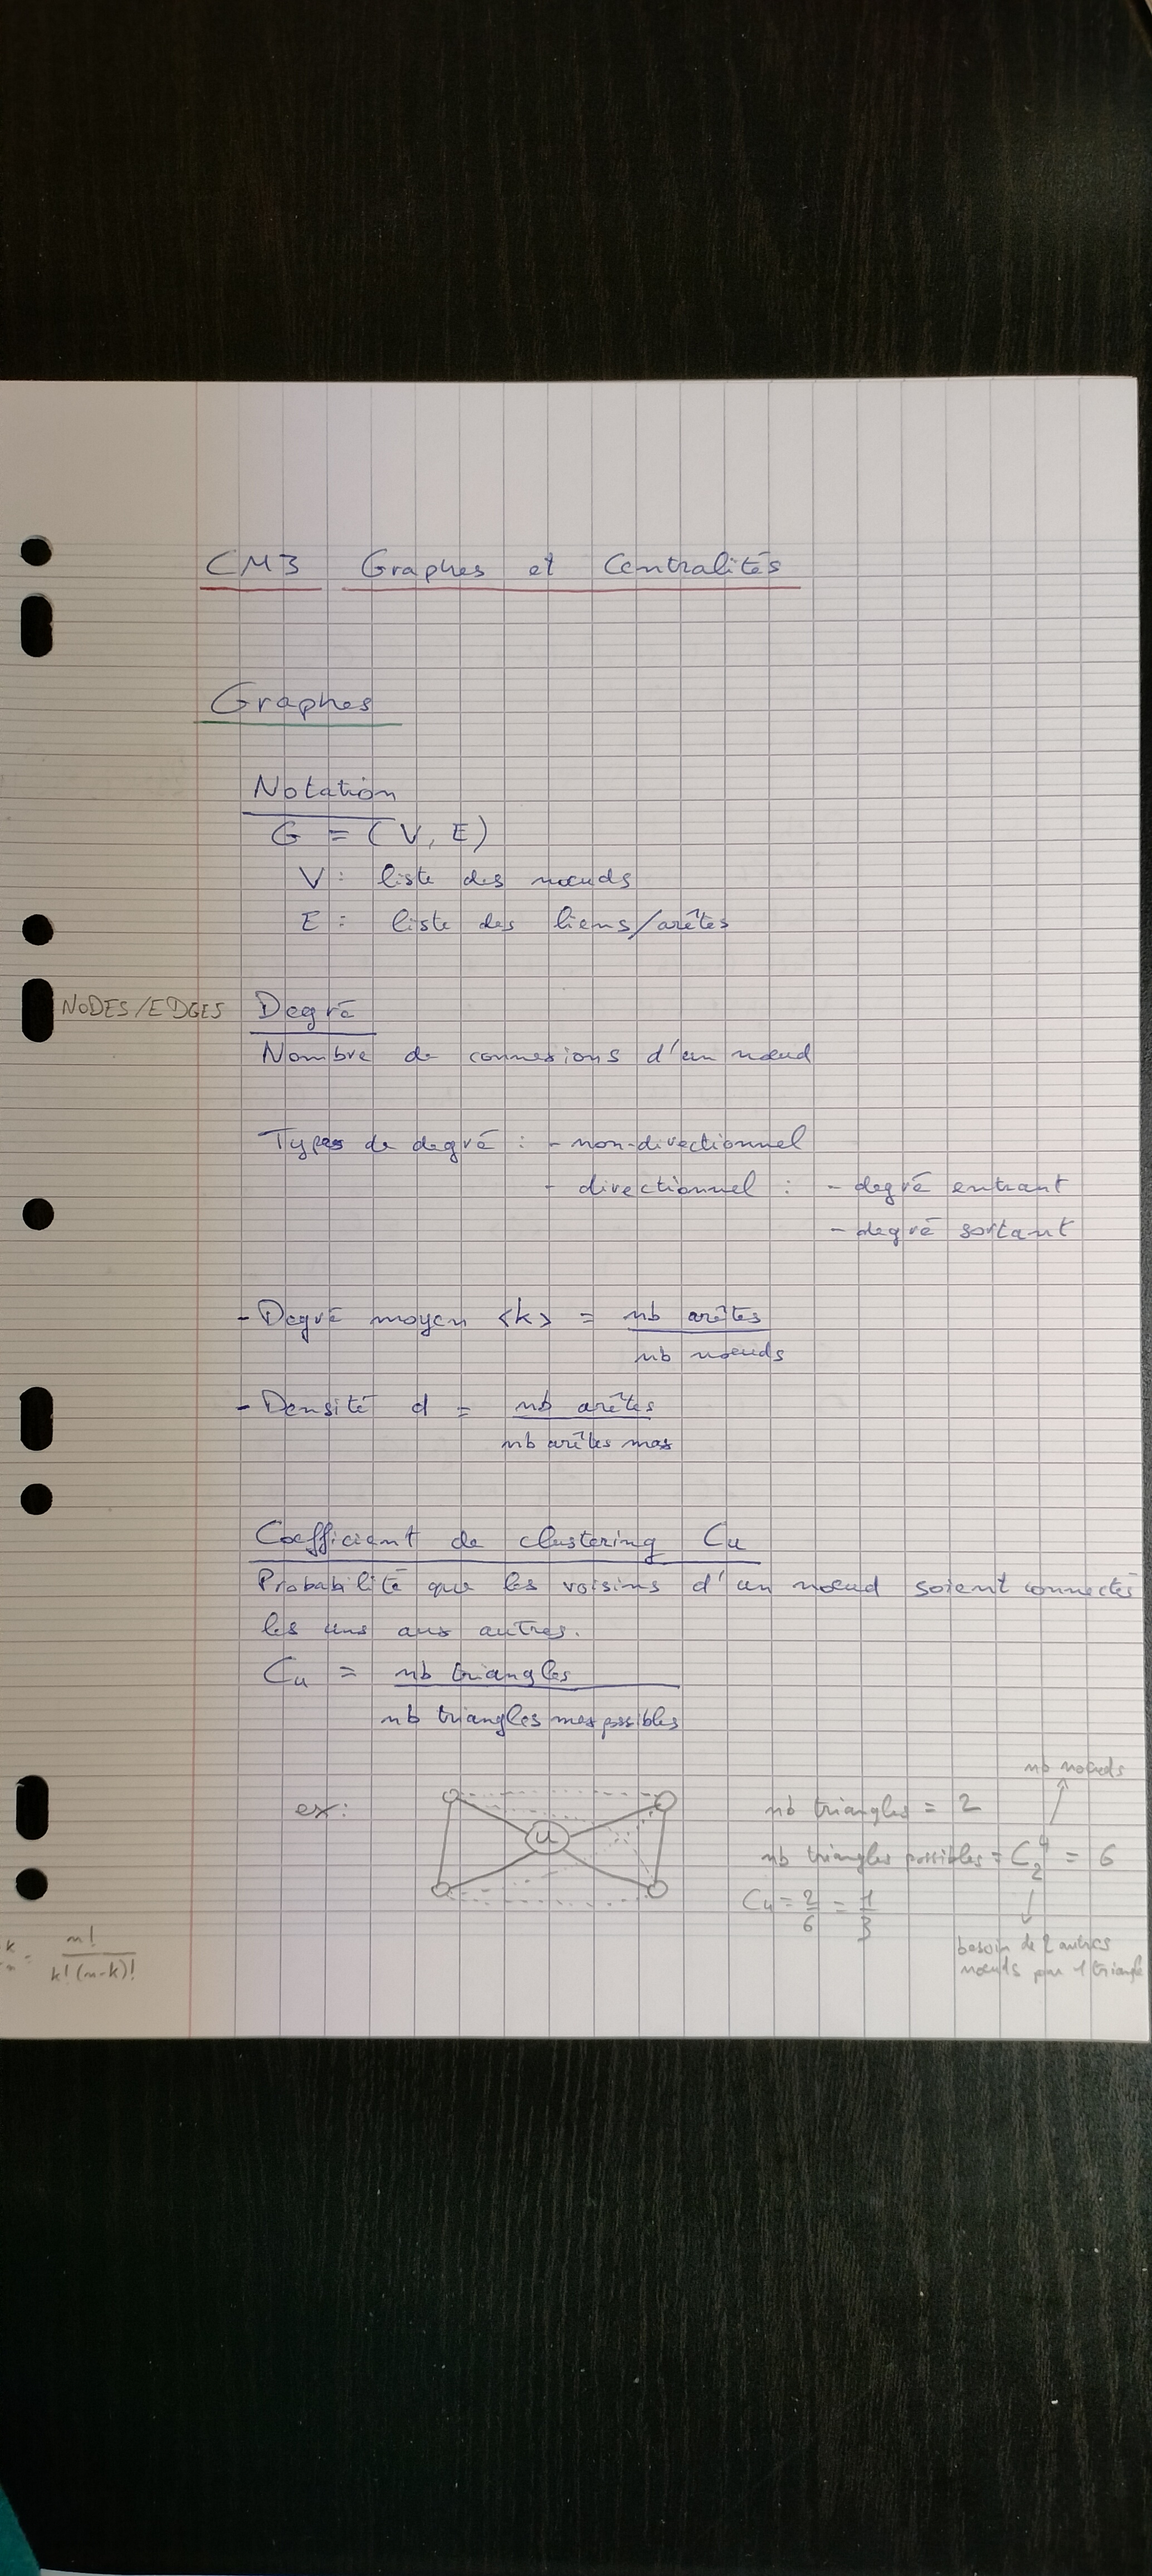 CM3 Graphes et Centralités
Graphes
Notation
G = (V, E)
V : liste des nœuds
E : liste des liens/arêtes
NODES/EDGES
Degré
Nombre de connexions d'un nœud
Types de degré : - non-directionnel
- directionnel : - degré entrant
- degré sortant
- Degré moyen <k> = nb arêtes
nb nœuds
- Densité d = nb arêtes
nb arêtes max
Coefficient de clustering Cu
Probabilité que les voisins d'un nœud soient connectés
les uns aux autres.
Cu = nb triangles
nb triangles max possibles
nb nœuds
ex:
u
nb triangles = 2
nb triangles possibles = C 4 2 = 6
Cu = 2/6 = 1/3
besoin de 2 autres
nœuds pour 1 triangle
k = n!
k!(n-k)!